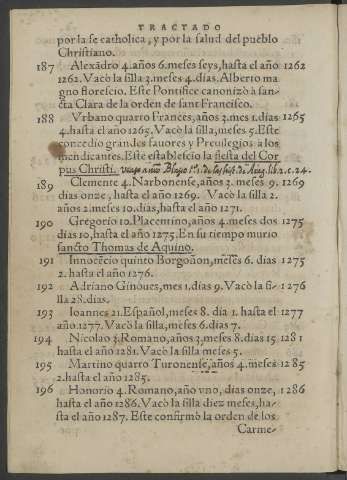 TRACTADO
por la fe catholica, y por la salud del pueblo
Christiano.
187 Alexãdro 4. años 6. meses seys, hasta el año 1262
1262. Vacò la silla 3. meses 4. dias. Alberto ma
gno florescio. Este Pontifice canonizò à san-
cta Clara de la orden de sant Francisco.
188 Vrbano quarto Frances, años 3. mes 1. dias 1265
4. hasta el año 1265. Vacò la silla, meses 5. Este
concedio grandes fauores y Preuilegios a los
mendicantes. Este establescio la fiesta del Cor
pus Christi.
189 Clemente 4. Narbonense, años 3. meses 9. 1269
dias onze, hasta el año 1269. Vacò la silla 2.
años 2. meses 10. dias, hasta el año 1271.
190 Gregorio 10. Placentino, años 4. meses dos 1275
dias 10, hasta el año 1275. En su tiempo murio
sancto Thomas de Aquino.
191 Innocẽcio quinto Borgoñon, meses 6. dias 1275
2. hasta el año 1276.
192 Adriano Ginoues, mes 1. dias 9. Vacò la si- 1276
lla 28. dias.
193 Ioannes 21. Español, meses 8. dia 1. hasta el 1277
año. 1277. Vacò la silla, meses 6. dias 7.
194 Nicolao 3. Romano, años 3. meses 8. dias 15 1281
hasta el año 1281. Vacò la silla meses 5.
195 Martino quarto Turonense, años 4. meses 1285
2. hasta el año 1285.
196 Honorio 4. Romano, año vno, dias onze, 1286
hasta el año 1286. Vacò la silla diez meses, ha-
sta el año 1287. Este confirmò la orden de los
Carme-